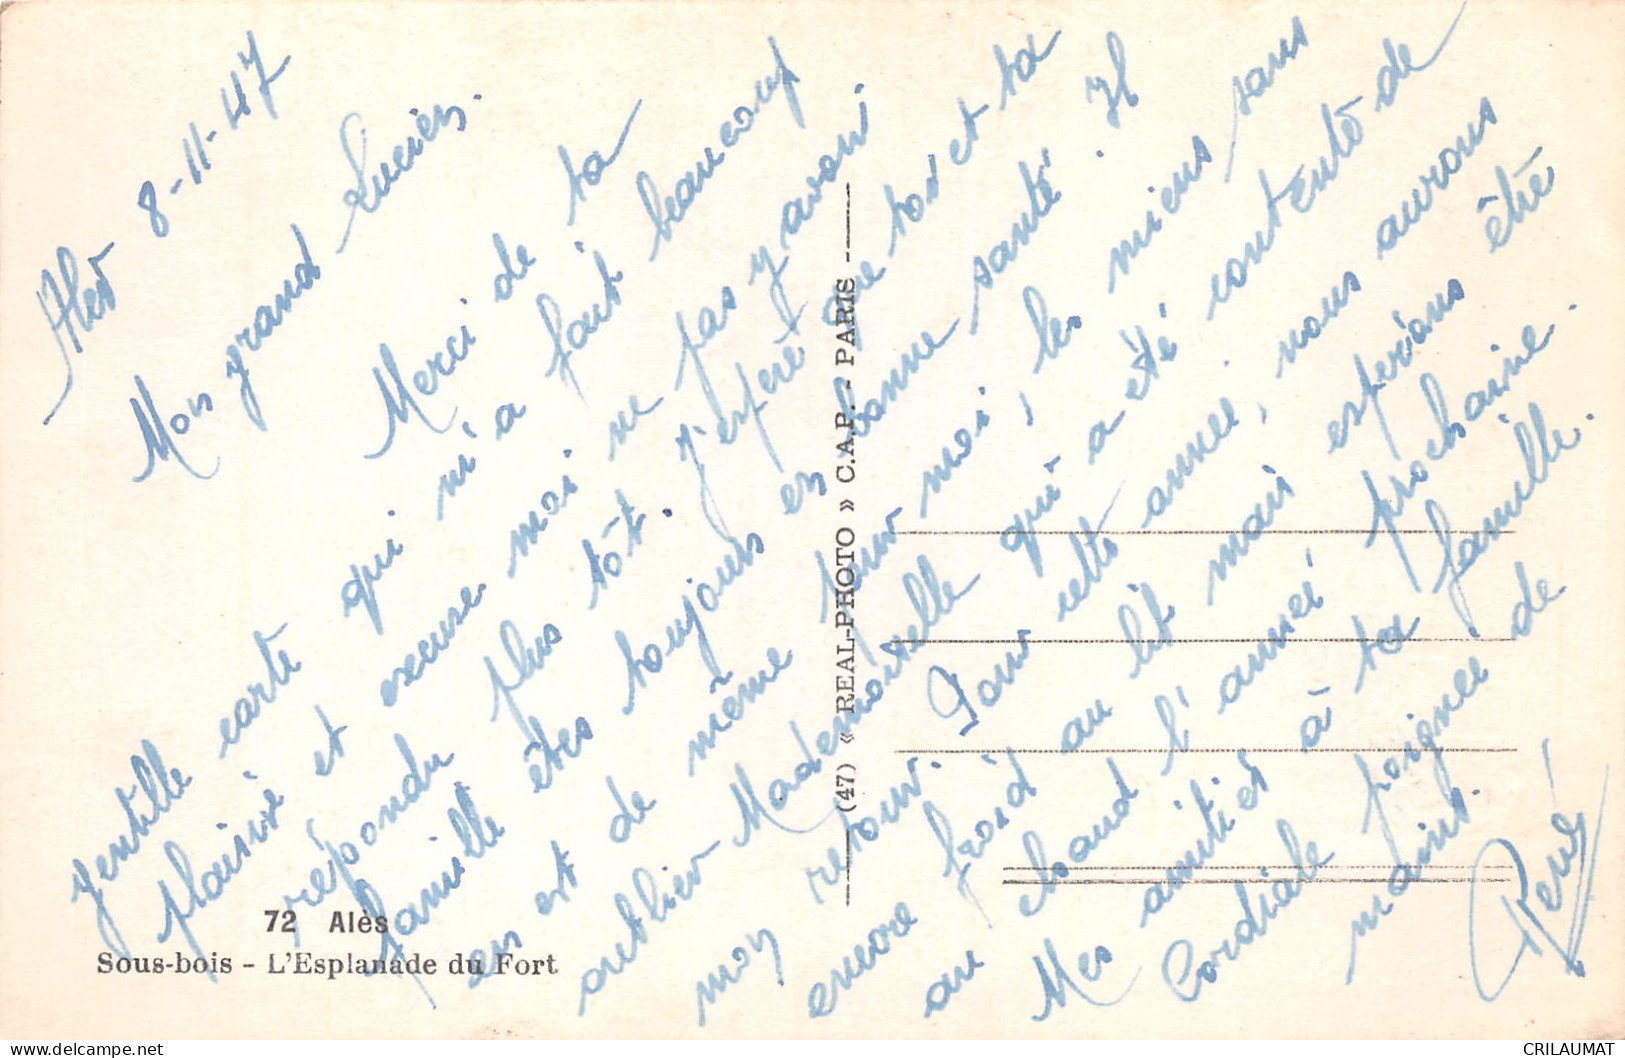 Alès 8-11-47
Mon grand Lucien.
Merci de ta
gentille carte qui m'a fait beaucoup
plaisir et excuse moi ne pas y avoir
répondu plus tôt. J'espère que toi et ta
famille êtes toujours en bonne santé. Il
en est de même pour moi, les miens sans
oublier Mademoiselle qui a été contente de
mon retour. Pour cette année, nous aurons
encore froid au lit mais espérons être
au chaud l'année prochaine.
Mes amitiés à ta famille.
Cordiale poignée de
mains.
René
72 Alès
Sous-bois - L'Esplanade du Fort
(47) « REAL-PHOTO » C.A.P. - PARIS
CRILAUMAT